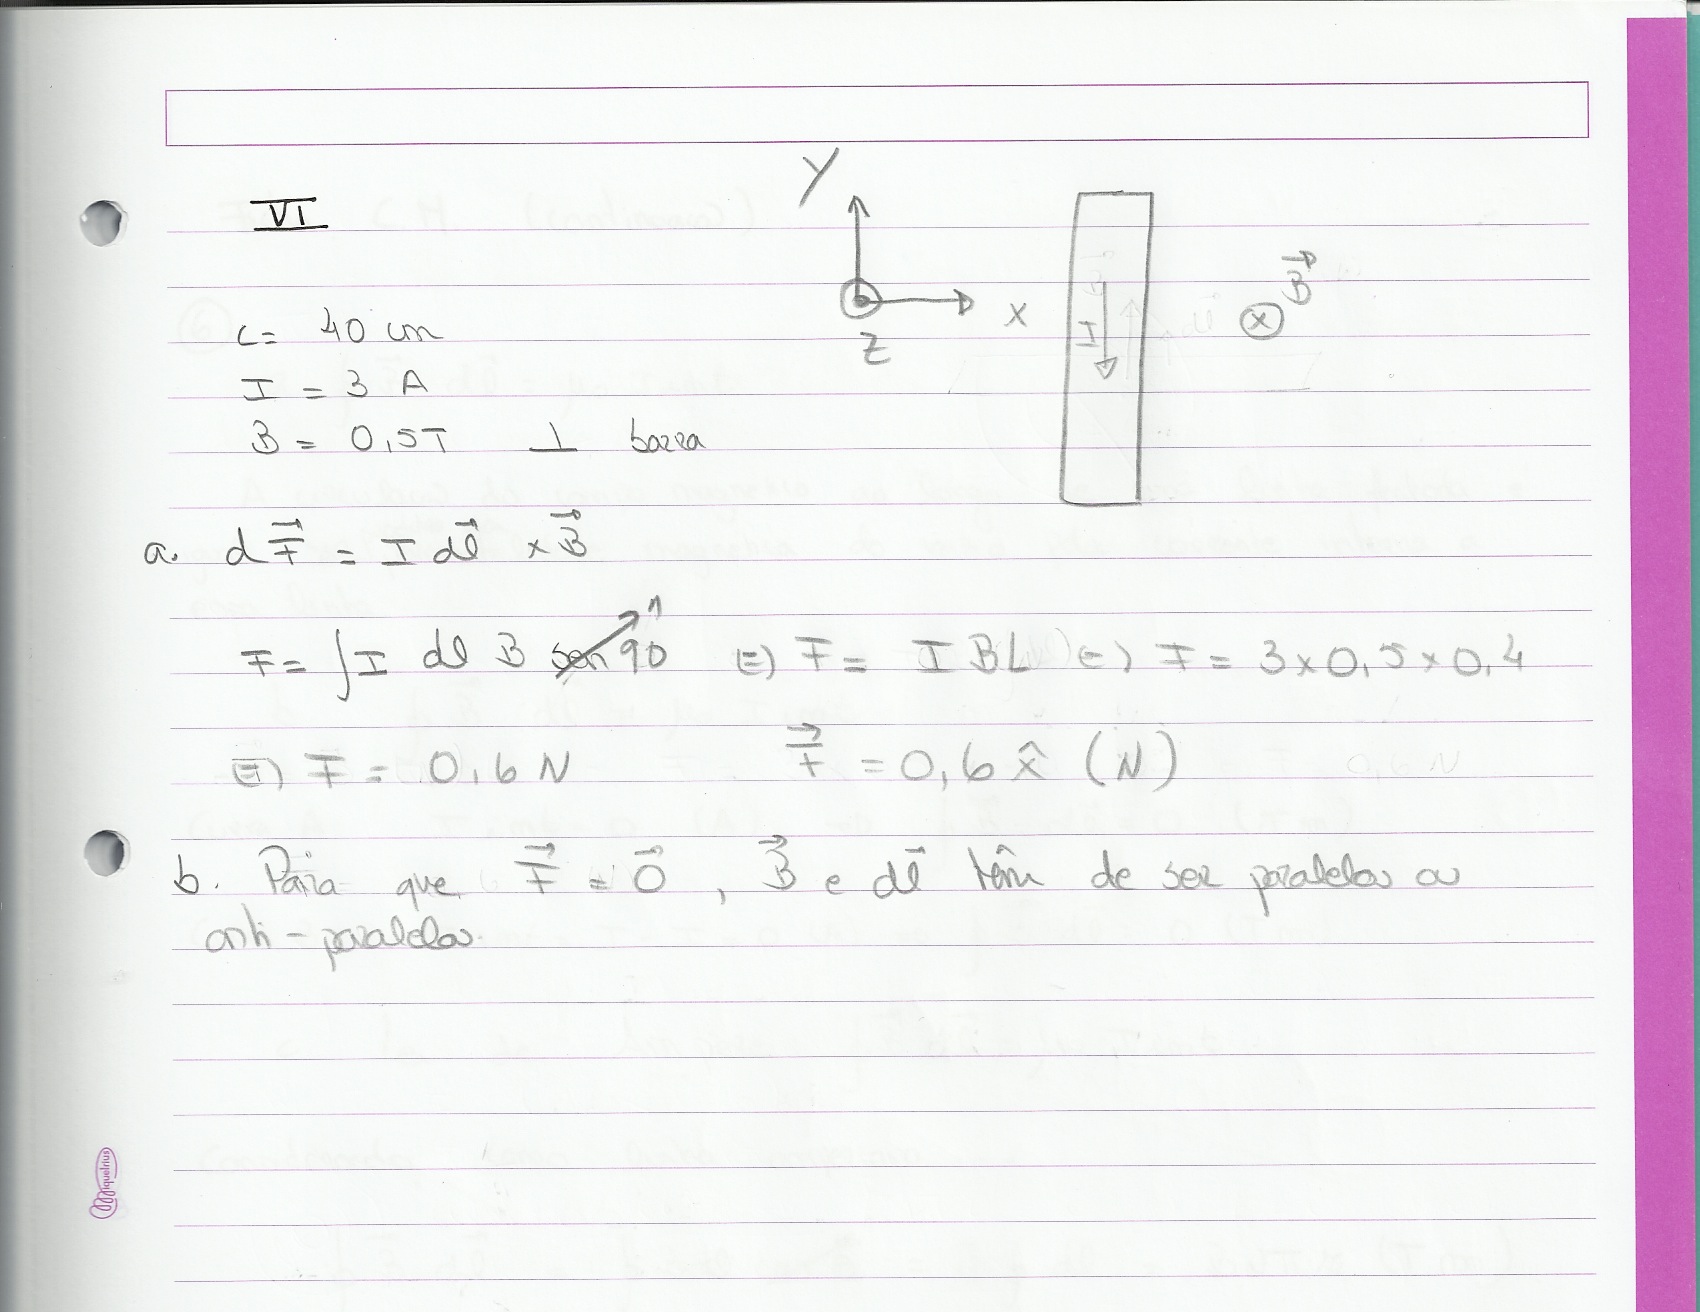 VI
Y
X
Z
I
B⃗
L = 40 cm
I = 3 A
B = 0,5T ⊥ barra
a. dF⃗ = I dl⃗ × B⃗
F = ∫ I dl B sen 90 1 (=) F = I B L (=) F = 3 x 0,5 x 0,4
(=) F = 0,6 N F⃗ = 0,6 x̂ (N)
b. Para que F⃗ = 0⃗ , B⃗ e dl⃗ têm de ser paralelos ou
anti-paralelos.
Miquelrius